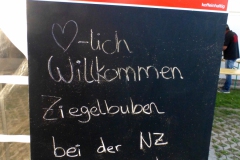 koffeinhaltig
♡-lich
Willkommen
Ziegelbuben
bei der NZ